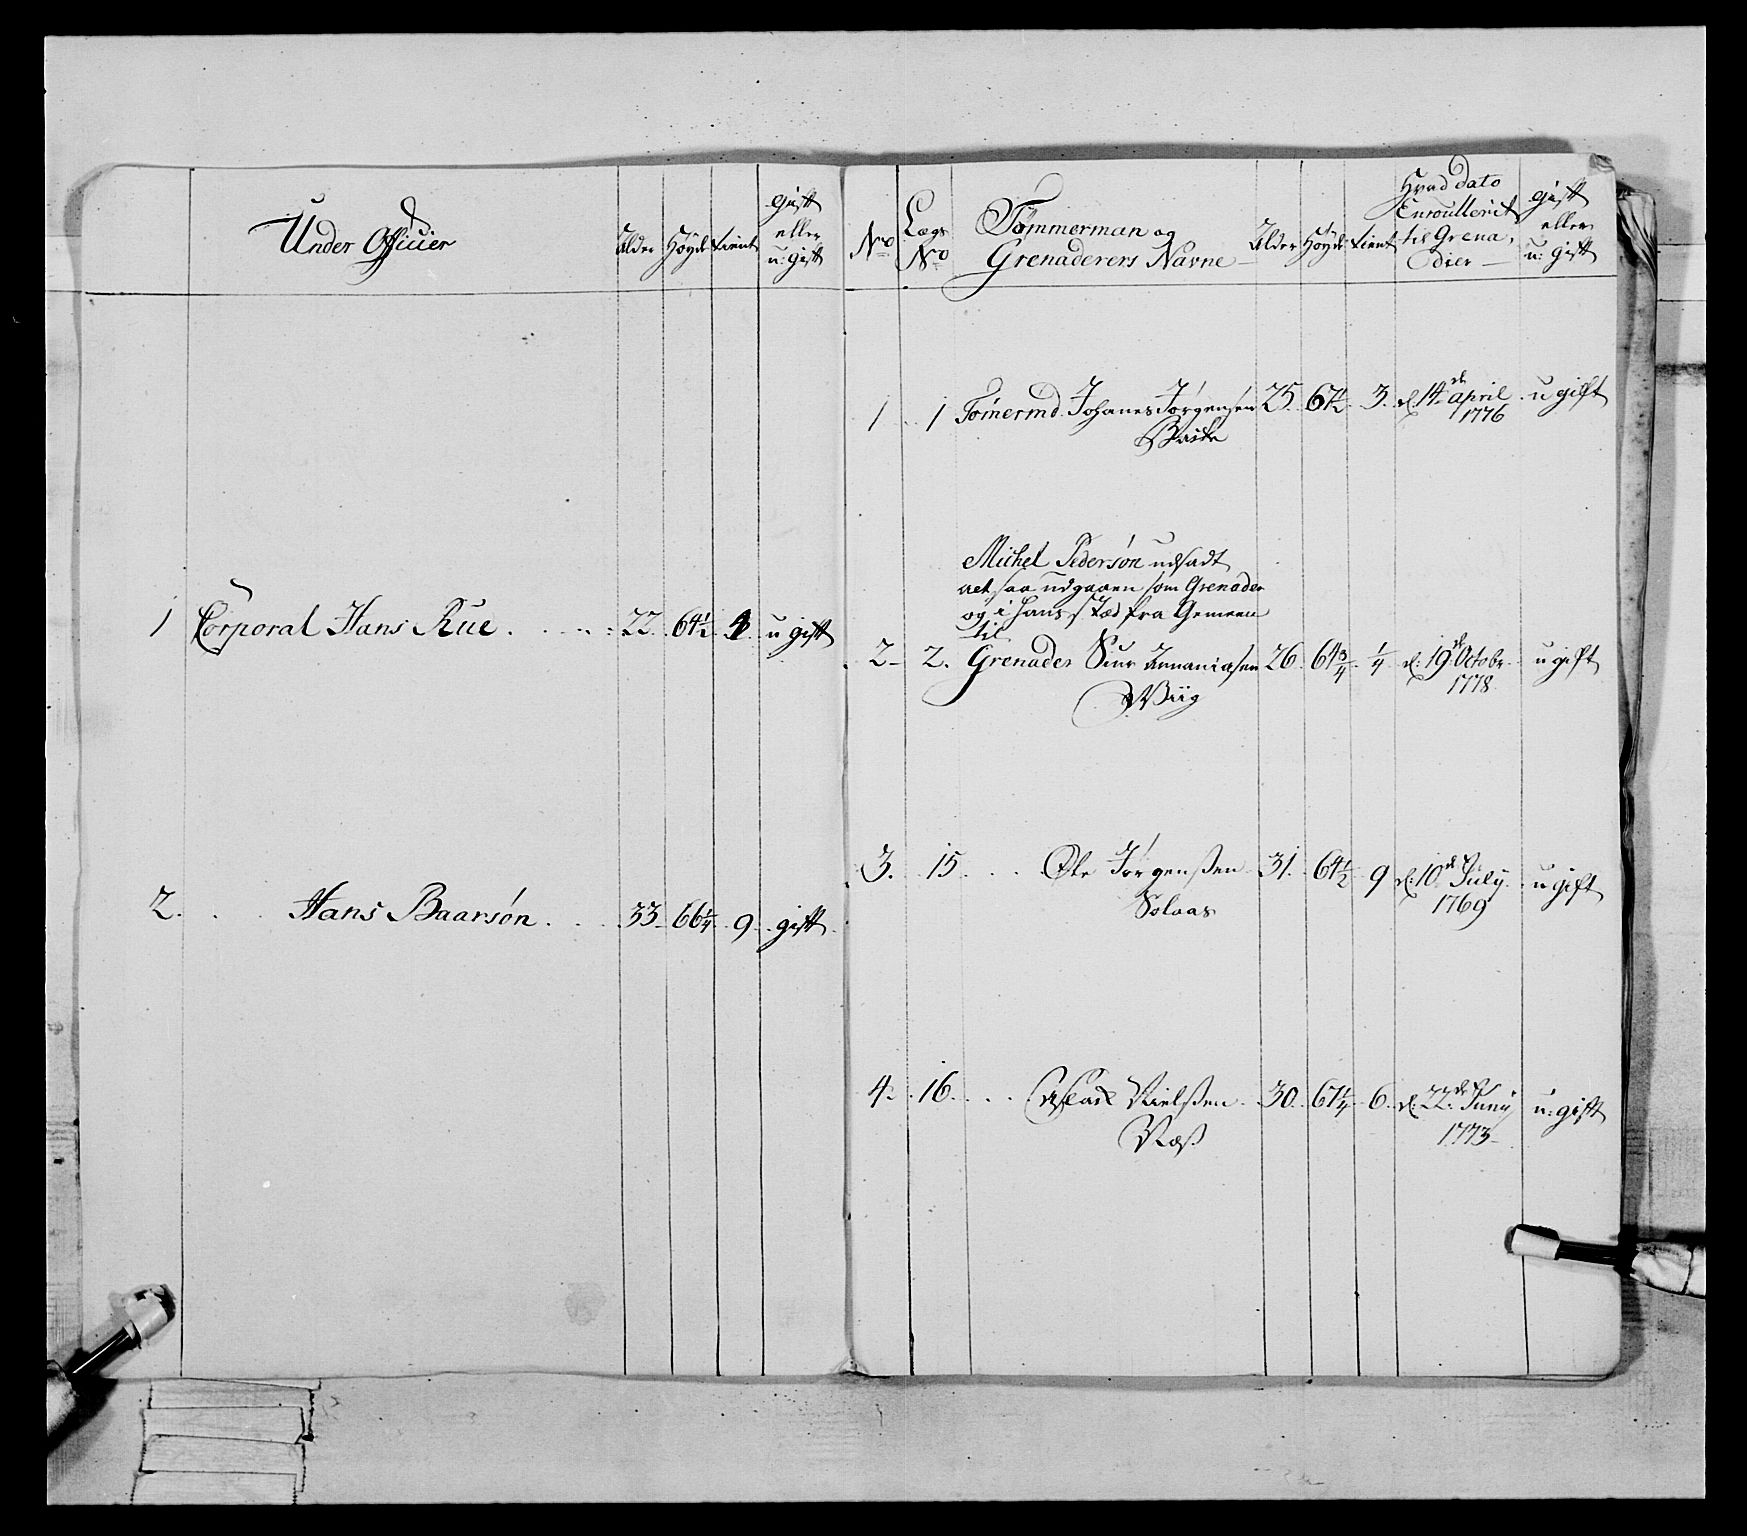 Under Officier Alder Höyde tient gift eller u: gift
1 Corporal Hans Rue 22 64½ 4 u gift
2. Hans Baarsøn 33 66¼ 9 gift
No Lægs No Tømmerman og Grenaderers Navne Alder Höyde tient Hvad dato Enroullerit til Grenadier gift eller u: gift
1 1 Tömermd. Johanes Jörgensen 25 67½ 3 d. 14de april 1776 u gift
Michel Pedersøn udsadt
saa udgaaen som Grenader
og i hans stæd fra Gemeen
til
2 2. Grenader Siur Annaniasen 26 64¾ ¼ d: 19de Octobr 1778 u gift
Wiig
3. 15 Ole Jörgenßen 31. 64½ 9 d: 10de July 1769 u gift
Solaas
4. 16 Nielßen 30 67¼ 6 d: 22de Juny 1773 u: gift
Næß